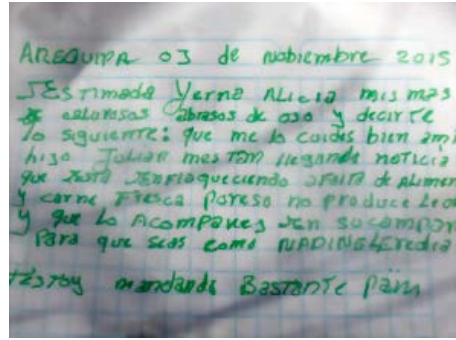 AREQUIPA 03 de nobiembre 2015
Estimada Yerna Alicia mis mas
calurosos abrasos de oso y decirte
lo siguiente: que me lo cuides bien ami
hijo Julian mes Tan llegando noticia
que Esta Enflaqueciendo afalta de Alimen
y carne Fresca Poreso no produce Lec
y que Lo Acompañes en su campa
Para que seas como NADINE Eredia
TEstoy mandando Bastante Pan